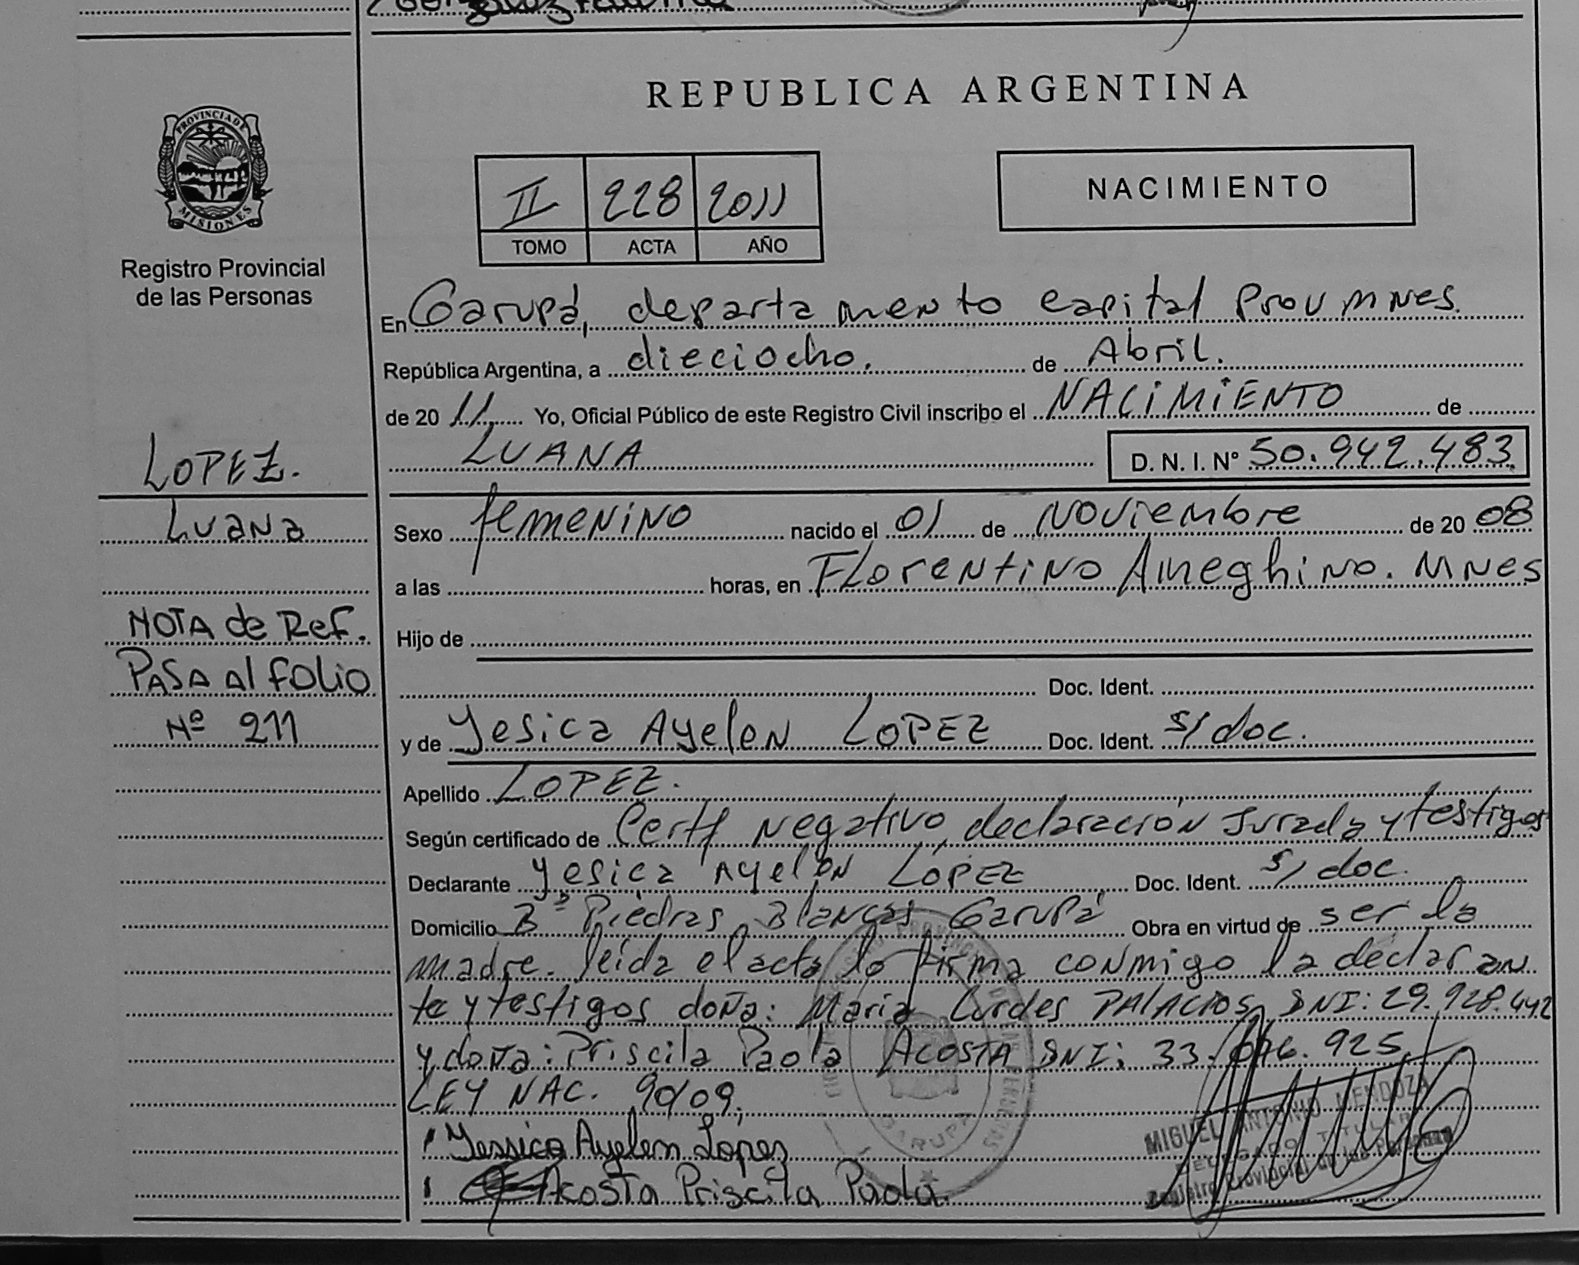 REPUBLICA ARGENTINA
PROVINCIA DE
MISIONES
Registro Provincial
de las Personas
II 228 2011
TOMO ACTA AÑO
NACIMIENTO
En Garupá, departamento capital Prov MNES.
República Argentina, a dieciocho. de Abril.
de 20 11 Yo, Oficial Público de este Registro Civil inscribo el NACIMIENTO de
LUANA D. N. I. Nº 50.942.483
LOPEZ.
Luana
NOTA de Ref.
PASA al folio
Nº 211
Sexo femenino nacido el 01 de Noviembre de 20 08
a las horas, en Florentino Ameghino. MNES
Hijo de
Doc. Ident.
y de Yesica Ayelen LOPEZ Doc. Ident. s/doc.
Apellido LOPEZ.
Según certificado de Certf negativo, declaración Jurada y testigos
Declarante Yesica Ayelen LOPEZ Doc. Ident. s/doc.
Domicilio Bº Piedras Blancas Garupá Obra en virtud de ser la
madre. leída el acta lo firma conmigo la declaran
te y testigos doña: Maria Lurdes PALACIOS, DNI: 29.928.442
y doña: Priscila Paola ACOSTA DNI: 33. 925
LEY NAC. 90/09,
Yessica Ayelen Lopez
Acosta Priscila Paola.
GARUPA
MIGUEL ANTONIO MENDOZA
DELEGADO TITULAR
Registro Provincial de las Personas